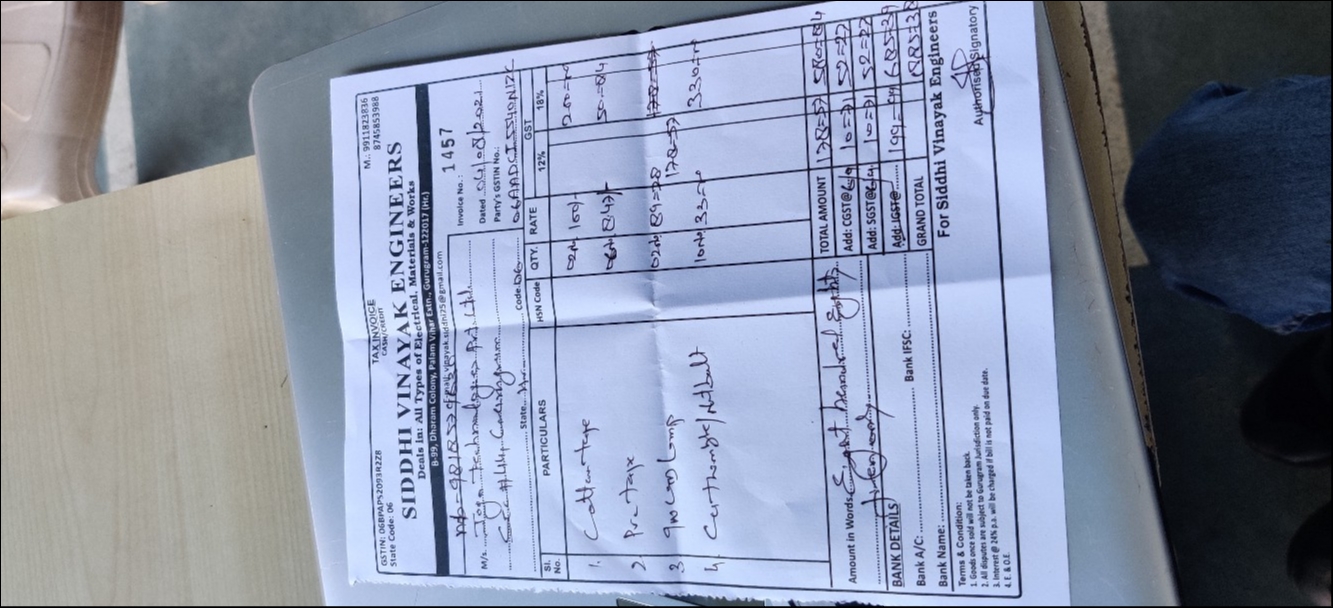 GSTIN: 06BPAPS2093R2Z8
State Code: 06
TAX INVOICE
CASH/CREDIT
M.: 9911823836
8745853988
SIDDHI VINAYAK ENGINEERS
Deals in: All Types of Electrical, Materials & Works
B-99, Dharam Colony, Palam Vihar Extn., Gurugram-122017 (Hr.)
vinayak.siddhi25@gmail.com
Invoice No.: 1457
M/s. Technologies Pvt. Ltd.
Dated 04/08/2021
Party's GSTIN No.:
State Hr. Code 06
Sl. No. PARTICULARS HSN Code QTY. RATE GST
12% 18%
1. Cotton tape 100/- 200=00
2 Pvc tape 50=84
3 Lamp 89=28 178=57
4. 33=00 330=00
TOTAL AMOUNT 178=57 580=84
Amount in Words Eight Hundred Eighty
Add: CGST@6/9 10=71 52=27
Add: SGST@6/9 10=71 52=27
Add: IGST@ 199=99 685=39
GRAND TOTAL 885=38
BANK DETAILS
Bank A/C:
Bank Name: Bank IFSC:
For Siddhi Vinayak Engineers
Terms & Condition:
1. Goods once sold will not be taken back.
2. All disputes are subject to Gurugram Jurisdiction only.
3. Interest @ 24% p.a. will be charged if bill is not paid on due date.
4. E. & O.E.
Authorised Signatory